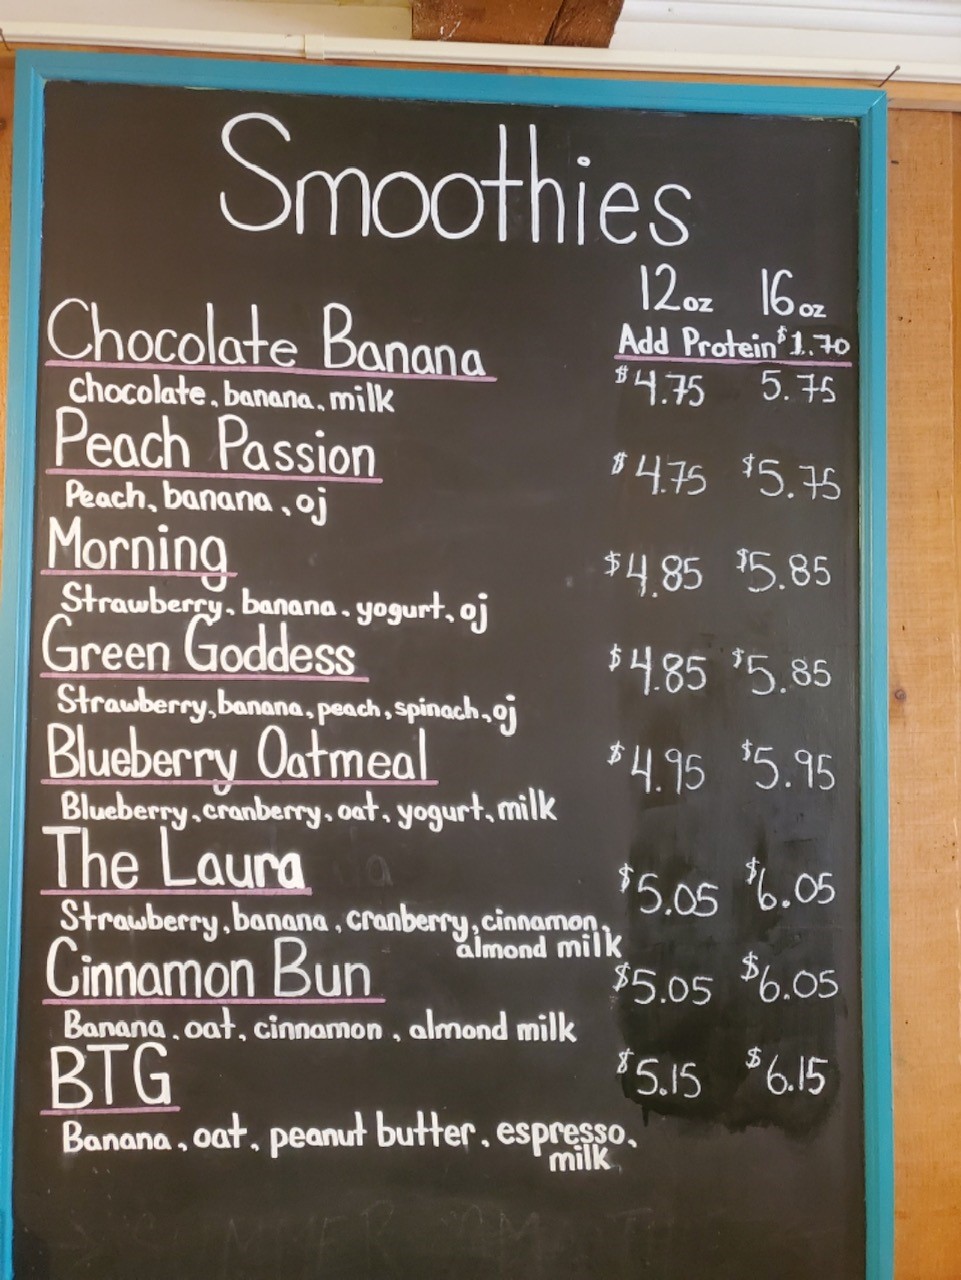 Smoothies
12oz 16oz
Add Protein $1.70
Chocolate Banana
$4.75 5.75
chocolate, banana, milk
Peach Passion
$4.75 $5.75
Peach, banana, oj
Morning
$4.85 $5.85
Strawberry, banana, yogurt, oj
Green Goddess
$4.85 $5.85
Strawberry, banana, peach, spinach, oj
Blueberry Oatmeal
$4.95 $5.95
Blueberry, cranberry, oat, yogurt, milk
The Laura
$5.05 $6.05
Strawberry, banana, cranberry, cinnamon,
almond milk
Cinnamon Bun
$5.05 $6.05
Banana, oat, cinnamon, almond milk
BTG
$5.15 $6.15
Banana, oat, peanut butter, espresso,
milk